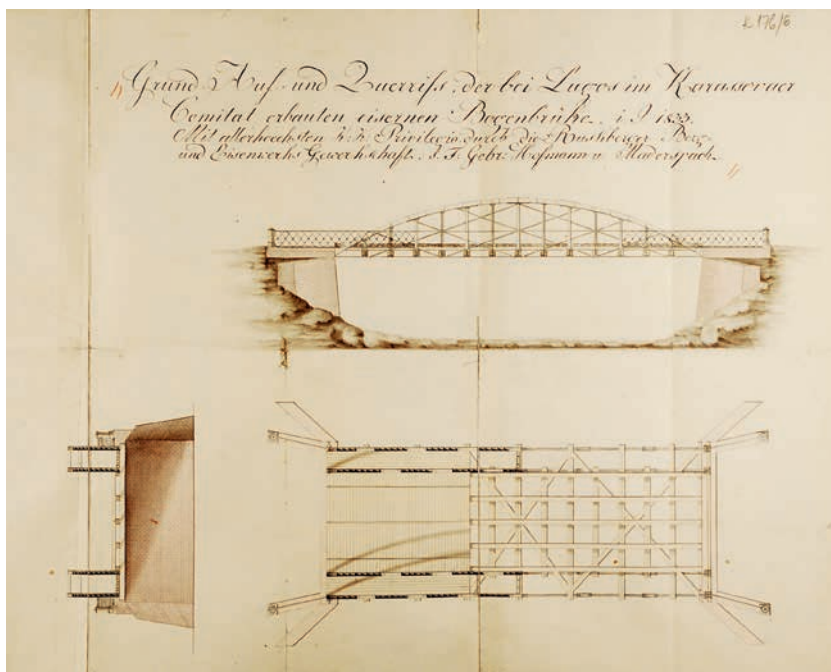 K 176/6
"Grund Auf- und Querriss, der bei Lugos im Karassovaer
Comitat erbauten eisernen Bogenbrüke i J 1833.
Mit allerhöchsten K. K. Privilegio durch die Ruskberger Berg
und Eisenwerks Gewerkschaft J. F. Gebr. Hofmann u. Maderspach."